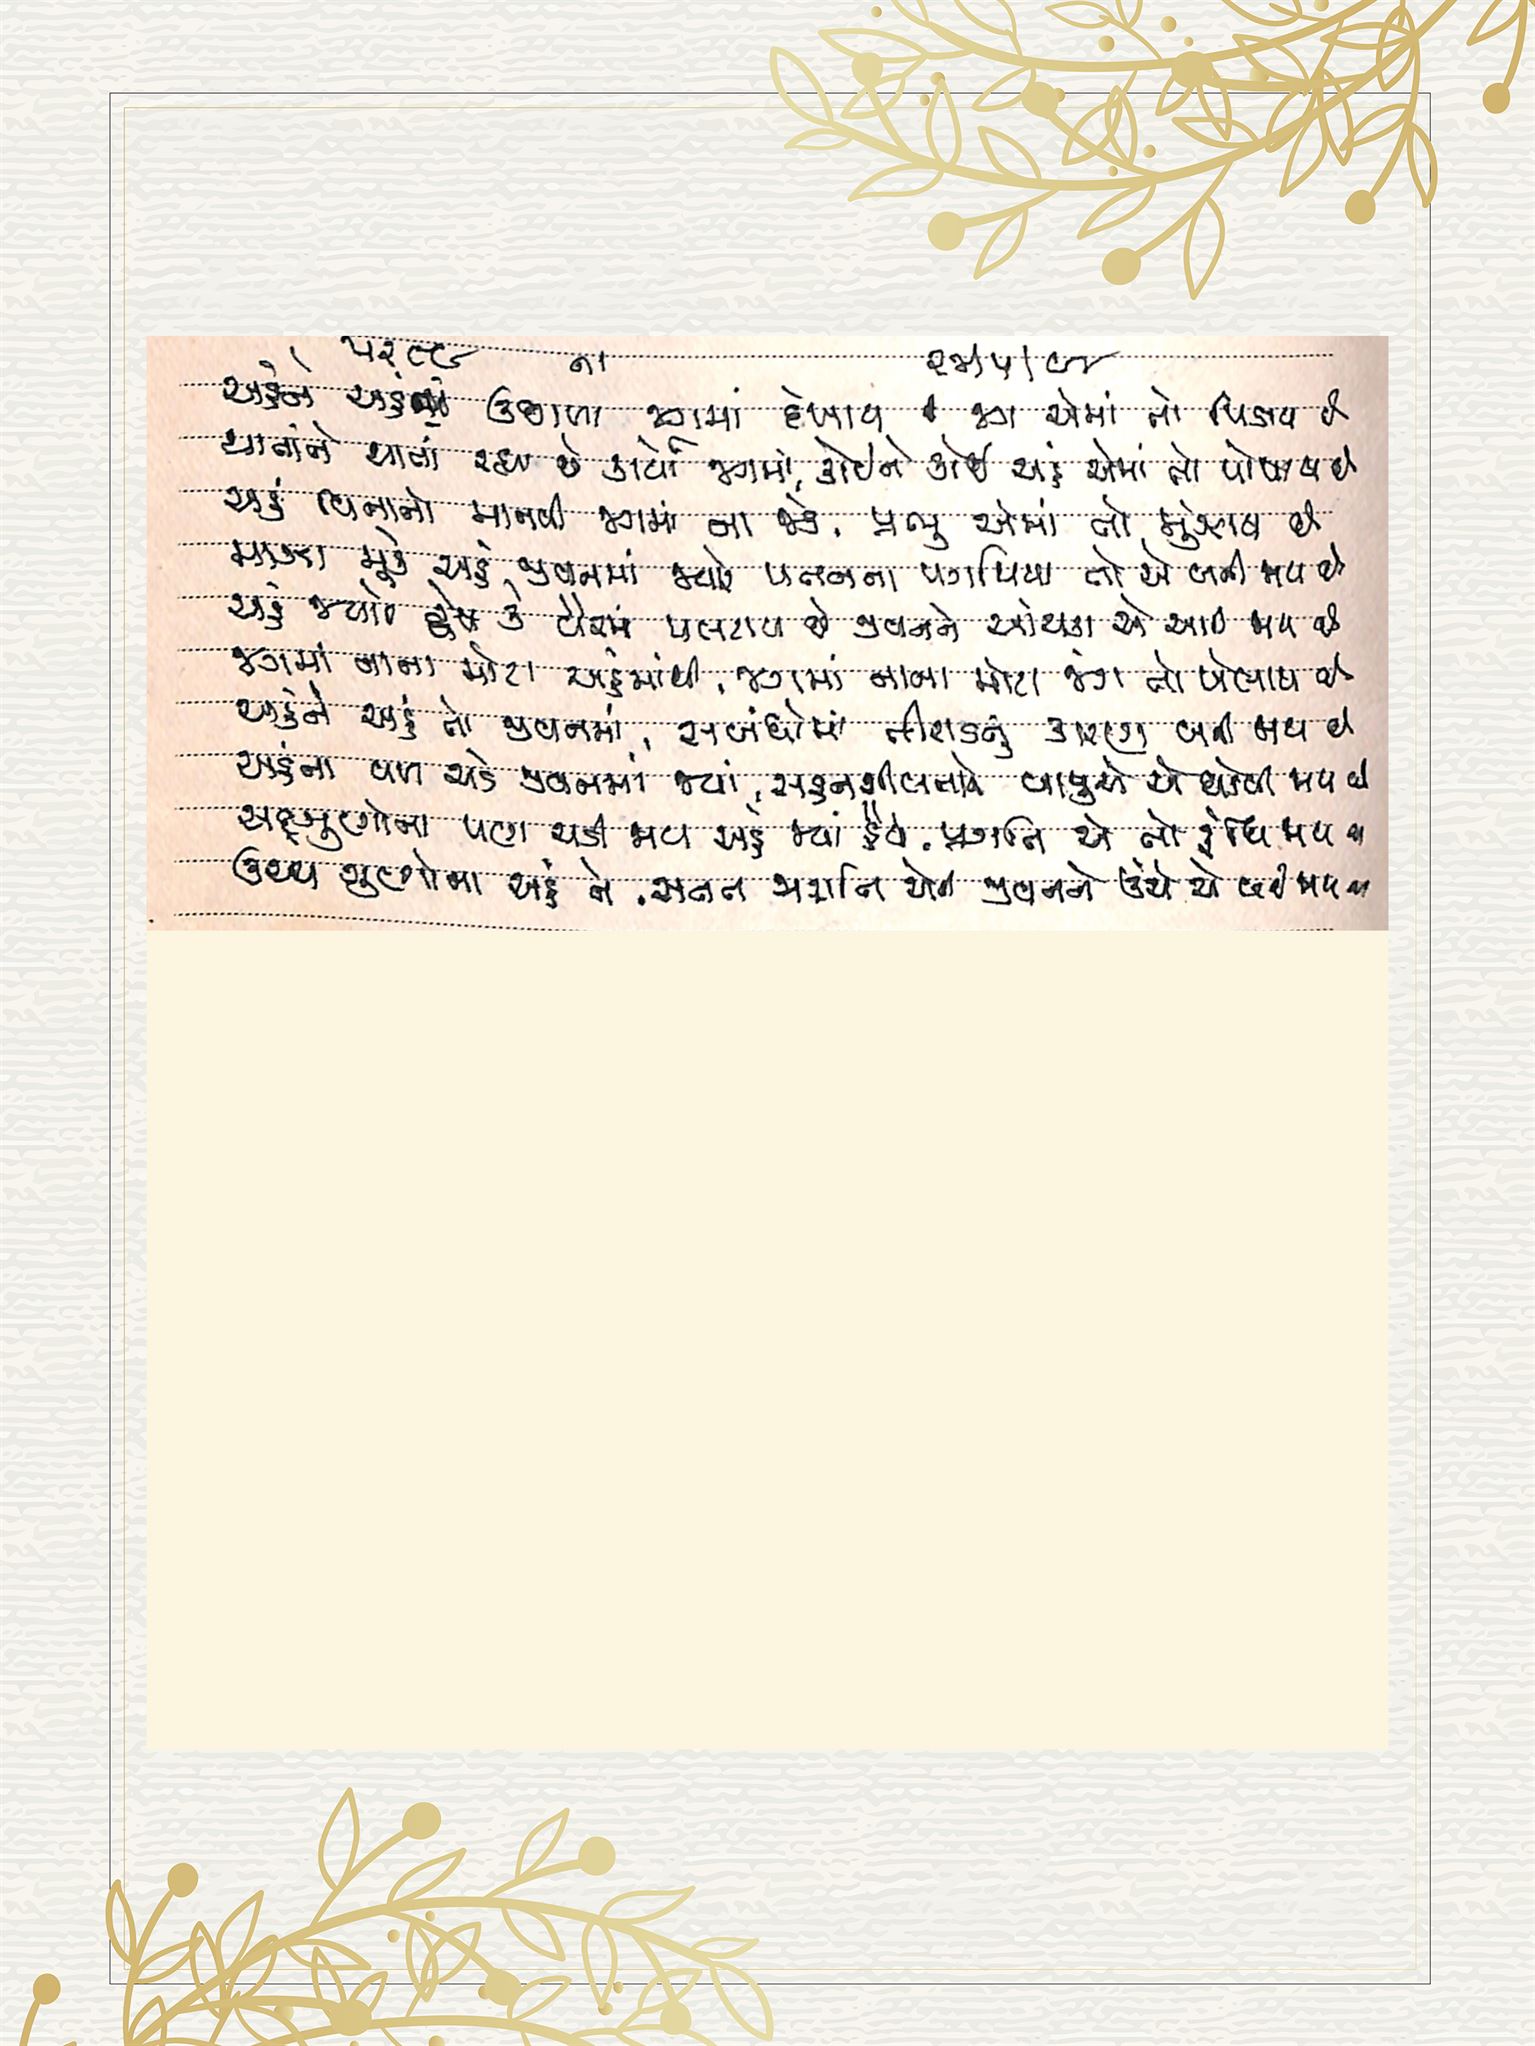 ૫૨૯૯ ના ૨૪/૫/૯૪
અહંને અહંના ઉછાળા જગમાં દેખાય છે જગ એમાં તો પિડાય છે
થાતાંને થાતાં રહ્યાં છે કાર્યો જગમાં, કોઈને કોઈ અહં એમાં તો પોષાય છે
અહં વિનાનો માનવી જગમાં ના જડે, પ્રભુ એમાં તો મુંઝાય છે
માઝા મૂકે અહં જીવનમાં જ્યારે પતનના પગથિયા તો એ બની જાય છે
અહં જ્યારે દ્વેષ કે વૈરમાં પલટાય છે જીવનને એ જાય છે
જગમાં નાના મોટા અહંમાંથી, જગમાં નાના મોટા જંગ તો ખેલાય છે
અહંને અહં તો જીવનમાં, સબંધોમાં તીરાડનું કારણ બની જાય છે
અહંના વળ ચડે જીવનમાં જ્યાં, સહનશીલતાને બાજુએ એ જાય છે
સદ્દગુણોના પણ ચડી જાય અહં જ્યાં હૈયે, પ્રગતિ એ તો રૂંધિ જાય છે
ઉચ્ચ ગુણોના અહં ને, સતત જીવનને ઉંચે એ લઈ જાય છે